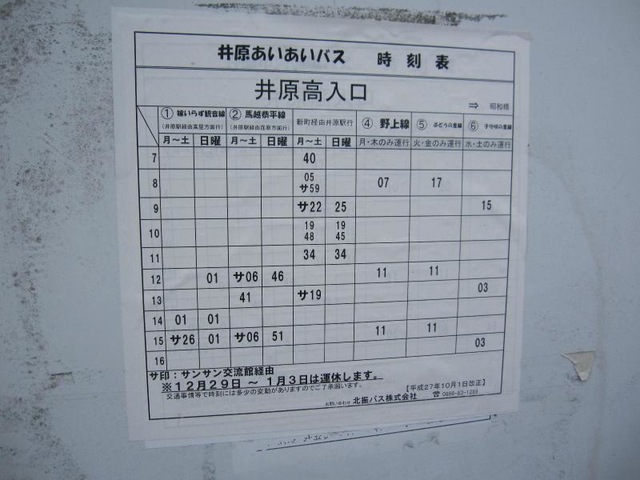 井原あいあいバス 時刻表
井原高入口
⇒ 昭和橋
① 嫁いらず観音線 ② 馬越恭平線 新町経由井原駅行 ④ 野上線 ⑤ ぶどうの里線 ⑥ 子守唄の里線
(井原駅経由高屋方面行) (井原駅経由荏原方面行)
月～土 日曜 月～土 日曜 月～土 日曜 月・木のみ運行 火・金のみ運行 水・土のみ運行
7 40
8 05 07 17
サ59
9 サ22 25 15
10 19 19
48 45
11 34 34
12 01 サ06 46 11 11
13 41 サ19 03
14 01 01
15 サ26 01 サ06 51 11 11 03
16
サ印：サンサン交流館経由
※12月29日 ～ 1月3日は運休します。
交通事情等で時刻には多少の変動がありますのでご了承願います。 【平成27年10月1日改正】
お問い合わせ 北振バス株式会社